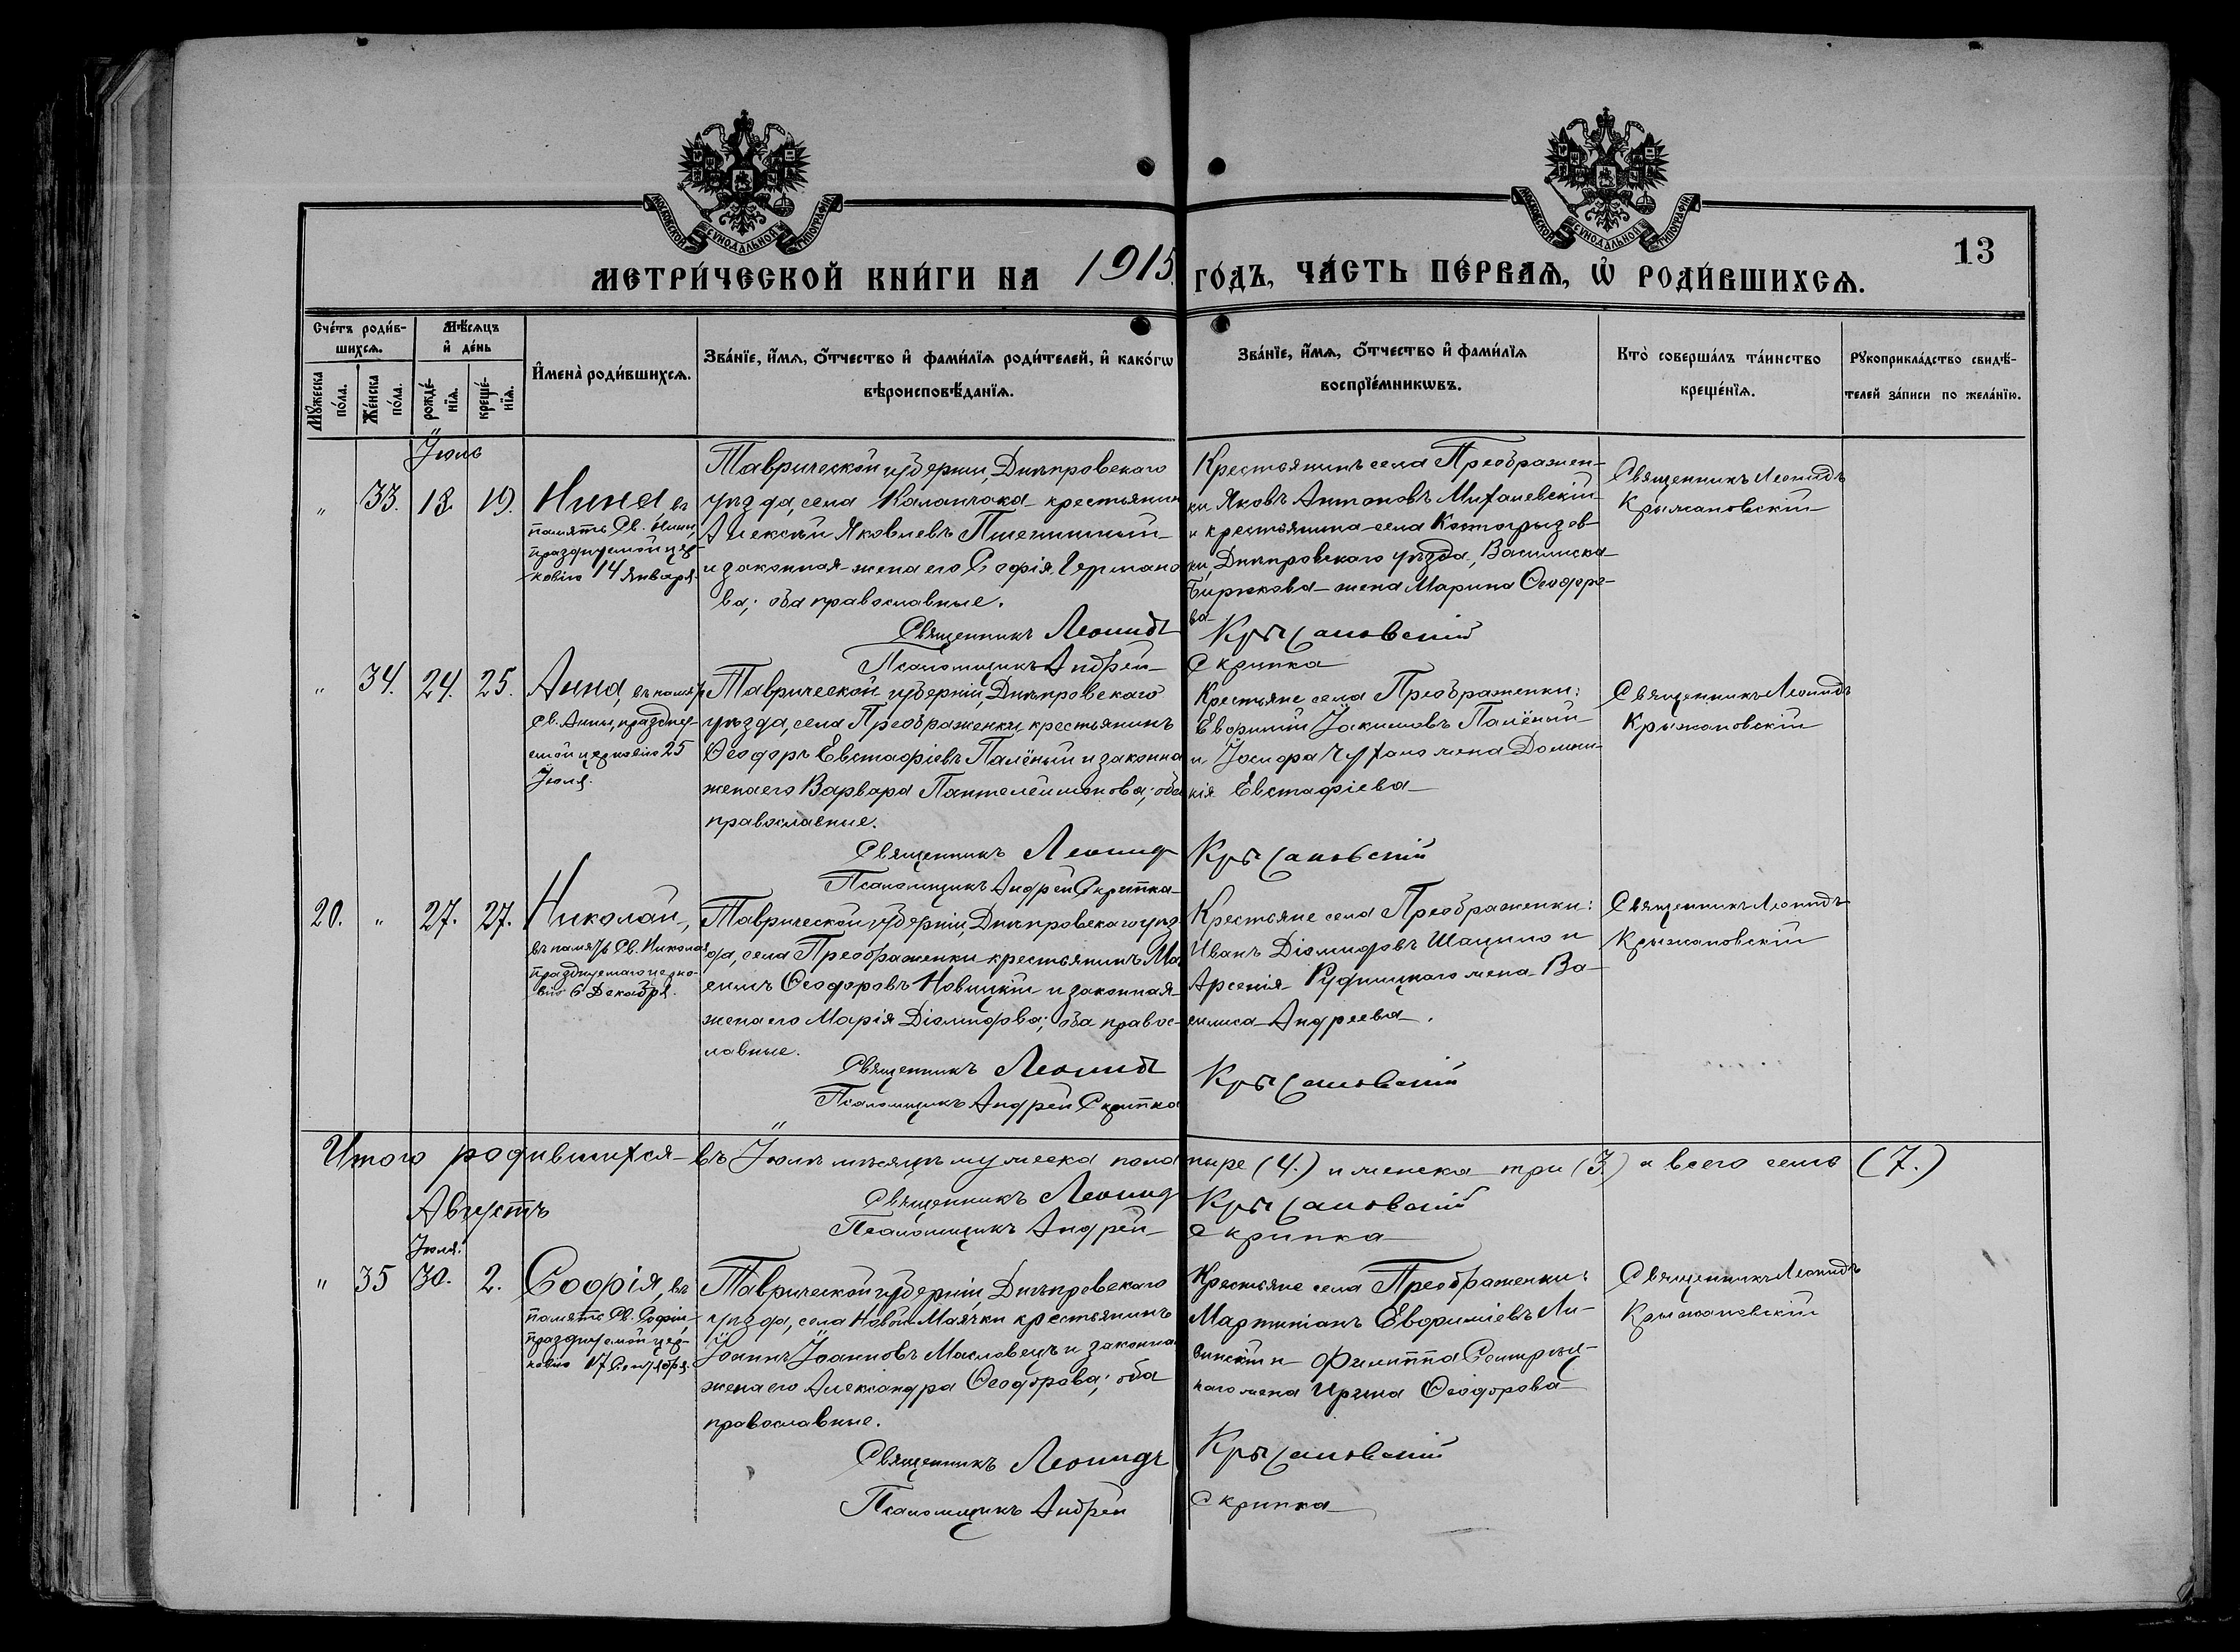 МОСКОВСКОЙ СУНОДАЛЬНОЙ ТИПОГРАФІИ
МОСКОВСКОЙ СУНОДАЛЬНОЙ ТИПОГРАФІИ
13
МЕТРИ́ЧЕСКОЙ КНИ́ГИ НА 1915 ГО́ДЪ, ЧА́СТЬ ПЕ́РВАѦ, Ѡ РОДИ́ВШИХСѦ.
Сче́тъ роди́в-
шихсѧ.
Мꙋ́жеска по́ла.
Же́нска по́ла.
Мѣ́сѧцъ и де́нь
рожде́-нїѧ.
креще́-нїѧ.
Имена̀ роди́вшихсѧ.
Зва́нїе, и́мѧ, ѻ́тчество и фами́лїѧ роди́телей, и како́гѡ
вѣроисповѣ́данїѧ.
Зва́нїе, и́мѧ, ѻ́тчество и фами́лїѧ
воспрїе́мникѡвъ.
Кто̀ соверша́лъ та́инство
креще́нїѧ.
Рꙋкоприкла́дство свидѣ́-
телей за́писи по жела́нїю.
Іюль
" 33. 18. 19.
Нина, въ
память Св. Нины,
празднуемой цер-
ковію 14 Января.
Таврической губерніи, Днѣпровскаго
уѣзда, села Каланчака крестьянинъ
Алексѣй Яковлевъ Пшеничный
и законная жена его Софія Германо
ва; оба православные.
Священникъ Леонидъ
Псаломщикъ Андрей
Крестьянинъ села Преображен-
ки Яковъ Антоновъ Михалевскій
и крестьянина села Костогрызов-
ки, Днѣпровскаго уѣзда, Василиска
Бирюкова жена Марина Ѳеодоро-
ва
Крыжановскій
Скрипка
Священникъ Леонидъ
Крыжановскій
" 34. 24. 25.
Анна, въ память
Св. Анны, праздну-
емой церковію 25
Іюля.
Таврической губерніи, Днѣпровскаго
уѣзда, села Преображенки крестьянинъ
Ѳеодоръ Евстафіевъ Палёный и законна
жена его Варвара Пантелеимонова; оба
православные.
Священникъ Леонид
Псаломщикъ Андрей Скрипка
Крестьяне села Преображенки:
Евфимій Іакимовъ Палёный
и Іосифа жена Домни-
кія Евстафіева
Крыжановскій
Священникъ Леонидъ
Крыжановскій
20. " 27. 27.
Николай,
въ память Св. Николая
празднуемаго церко-
вію 6 Декабря.
Таврической губерніи, Днѣпровскаго уѣз
да, села Преображенки крестьянинъ Ма
симъ Ѳеодоровъ Новицкій и законная
жена его Марія Діомидова; оба правос-
лавные.
Священникъ Леонидъ
Псаломщикъ Андрей Скрипка
Крестьяне села Преображенки:
Иванъ Діомидовъ Шацило и
Арсенія Рудницкаго жена Ва-
силиса Андреева.
Крыжановскій
Священникъ Леонидъ
Крыжановскій
Итого родившихся въ Іюлѣ мѣсяцѣ мужеска пола тыре (4.) и женска три (3) а всего семь (7.)
Священникъ Леонид Крыжановскій
Псаломщикъ Андрей Скрипка
Августъ
Іюля.
" 35 30. 2.
Софія, въ
память Св. Софіи,
празднуемой цер-
ковію 17 Сентября.
Таврической губерніи Днѣпровскаго
уѣзда, села Новой Маячки крестьянинъ
Іоаннъ Іоанновъ Масловецъ и законна
жена его Александра Ѳеодорова; оба
православные.
Священникъ Леонидъ
Псаломщикъ Андрей
Крестьяне села Преображенки:
Мартиніанъ Евфиміевъ Ли-
винскій и Филиппа
наго жена Ирина Ѳеодорова
Крыжановскій
Скрипка
Священникъ Леонидъ
Крыжановскій